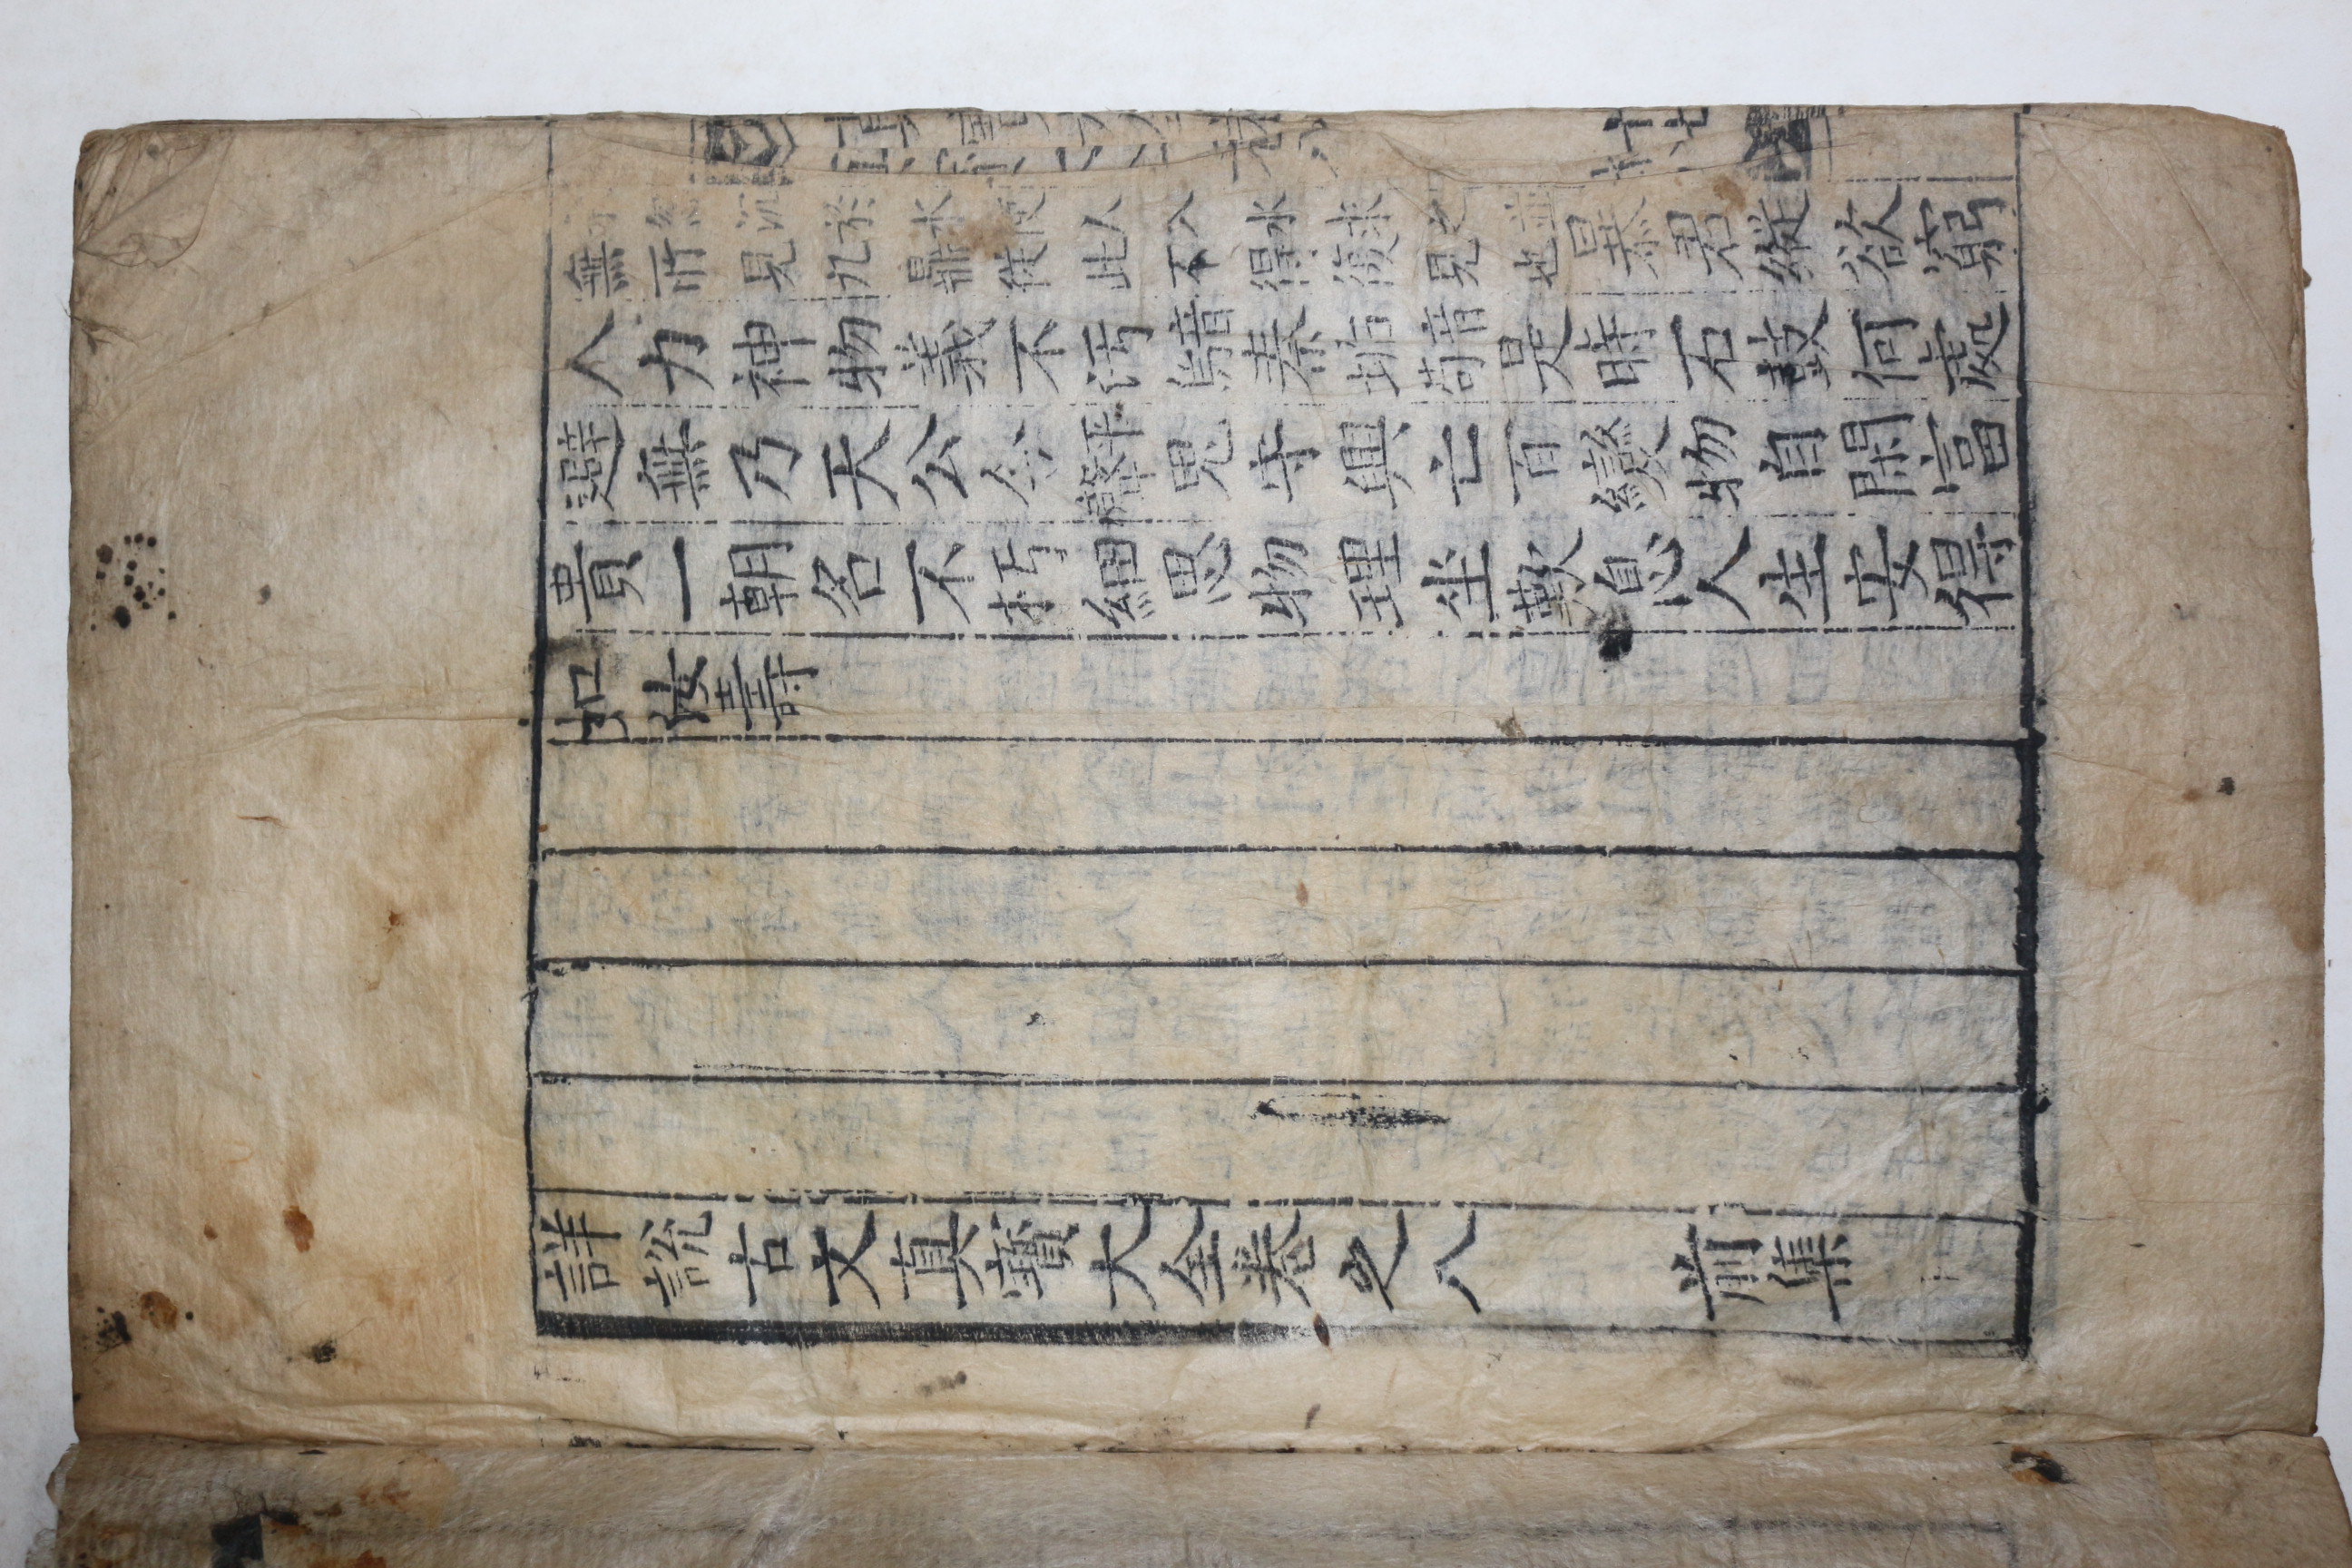 忽沉於水使人入水求之並
無所見九鼎從此不得復見也
暴君縱欲窮
人力神物義不汚音烏秦垢音苟是時石鼓何處
避無乃天公令平聲鬼守興亡百變物自閑富
貴一朝名不朽細思物理坐歎息人生安得
如汝壽
詳說古文真寶大全卷之八 前集